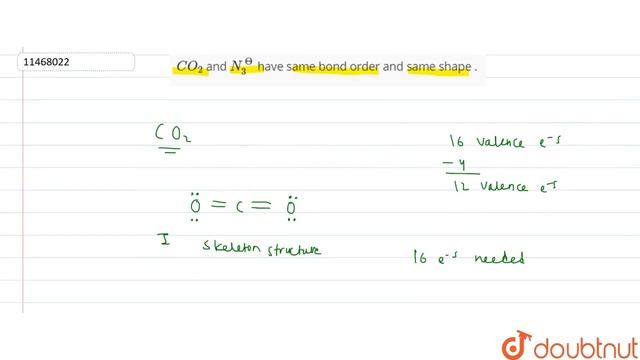 11468022
CO₂ and N₃^⊖ have same bond order and same shape .
CO₂
16 valence e⁻s
- 4
12 valence e⁻s
O = C = O
I skeleton structure
16 e⁻s needed
doubtnut